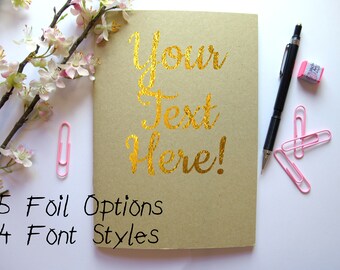 Your
Text
Here!
5 Foil Options
4 Font Styles